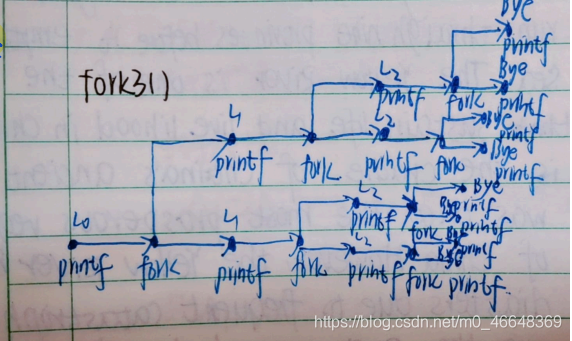 Bye
printf
fork3()
L2
printf
fork
Bye
printf
L1
printf
fork
L2
printf
fork
Bye
printf
Bye
printf
L0
printf
fork
L1
printf
fork
L2
printf
fork
Bye
printf
Bye
printf
L2
printf
fork
Bye
printf
Bye
printf
https://blog.csdn.net/m0_46648369